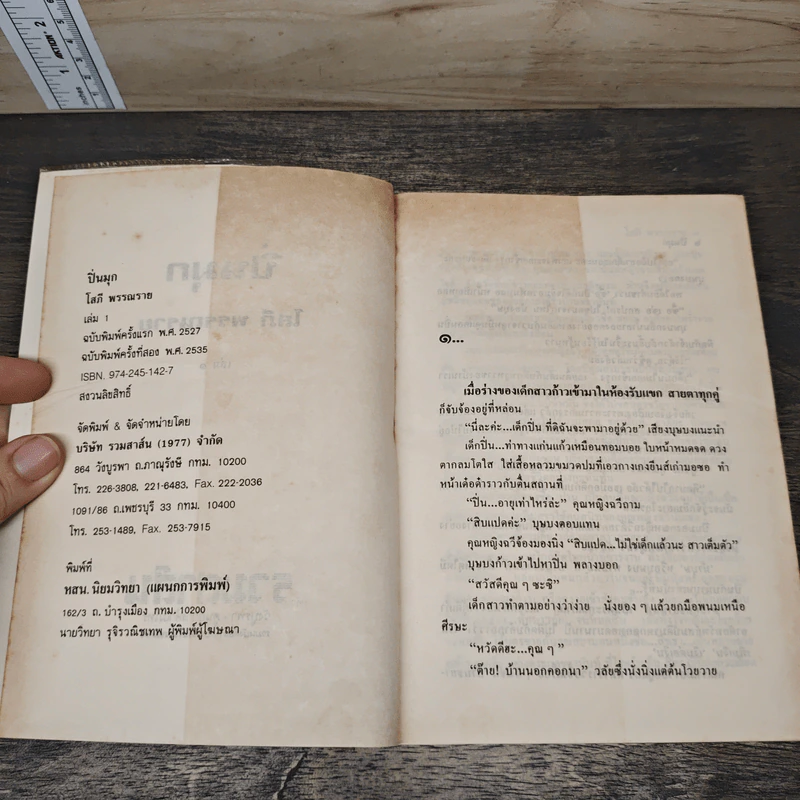 ปิ่นมุก
โสภี พรรณราย
เล่ม 1
ฉบับพิมพ์ครั้งแรก พ.ศ. 2527
ฉบับพิมพ์ครั้งที่สอง พ.ศ. 2535
ISBN. 974-245-142-7
สงวนลิขสิทธิ์
จัดพิมพ์ & จัดจำหน่ายโดย
บริษัท รวมสาส์น (1977) จำกัด
864 วังบูรพา ถ.ภาณุรังษี กทม. 10200
โทร. 226-3808, 221-6483, Fax. 222-2036
1091/86 ถ.เพชรบุรี 33 กทม. 10400
โทร. 253-1489, Fax. 253-7915
พิมพ์ที่
หสน. นิยมวิทยา (แผนกการพิมพ์)
162/3 ถ. บำรุงเมือง กทม. 10200
นายวิทยา รุจิรวณิชเทพ ผู้พิมพ์ผู้โฆษณา
๑...
เมื่อร่างของเด็กสาวก้าวเข้ามาในห้องรับแขก สายตาทุกคู่
ก็จับจ้องอยู่ที่หล่อน
“นี่ละค่ะ...เด็กปิ่น ที่ดิฉันจะพามาอยู่ด้วย” เสียงบุษบงแนะนำ
เด็กปิ่น...ทำทางแก่นแก้วเหมือนทอมบอย ใบหน้าหมดจด ดวง
ตากลมโตใส ใส่เสื้อหลวมขมวดปมที่เอวกางเกงยีนส์เก่ามอซอ ทำ
หน้าเด๋อด๋าราวกับตื่นสถานที่
“ปิ่น...อายุเท่าไหร่ล่ะ” คุณหญิงฉวีถาม
“สิบแปดค่ะ” บุษบงตอบแทน
คุณหญิงฉวีจ้องมองนิ่ง “สิบแปด...ไม่ใช่เด็กแล้วนะ สาวเต็มตัว”
บุษบงก้าวเข้าไปหาปิ่น พลางบอก
“สวัสดีคุณ ๆ ซะซิ”
เด็กสาวทำตามอย่างว่าง่าย นั่งยอง ๆ แล้วยกมือพนมเหนือ
ศีรษะ
“หวัดดีฮะ...คุณ ๆ ”
“ต๊าย! บ้านนอกคอกนา” วลัยซึ่งนั่งนิ่งแต่ต้นโวยวาย